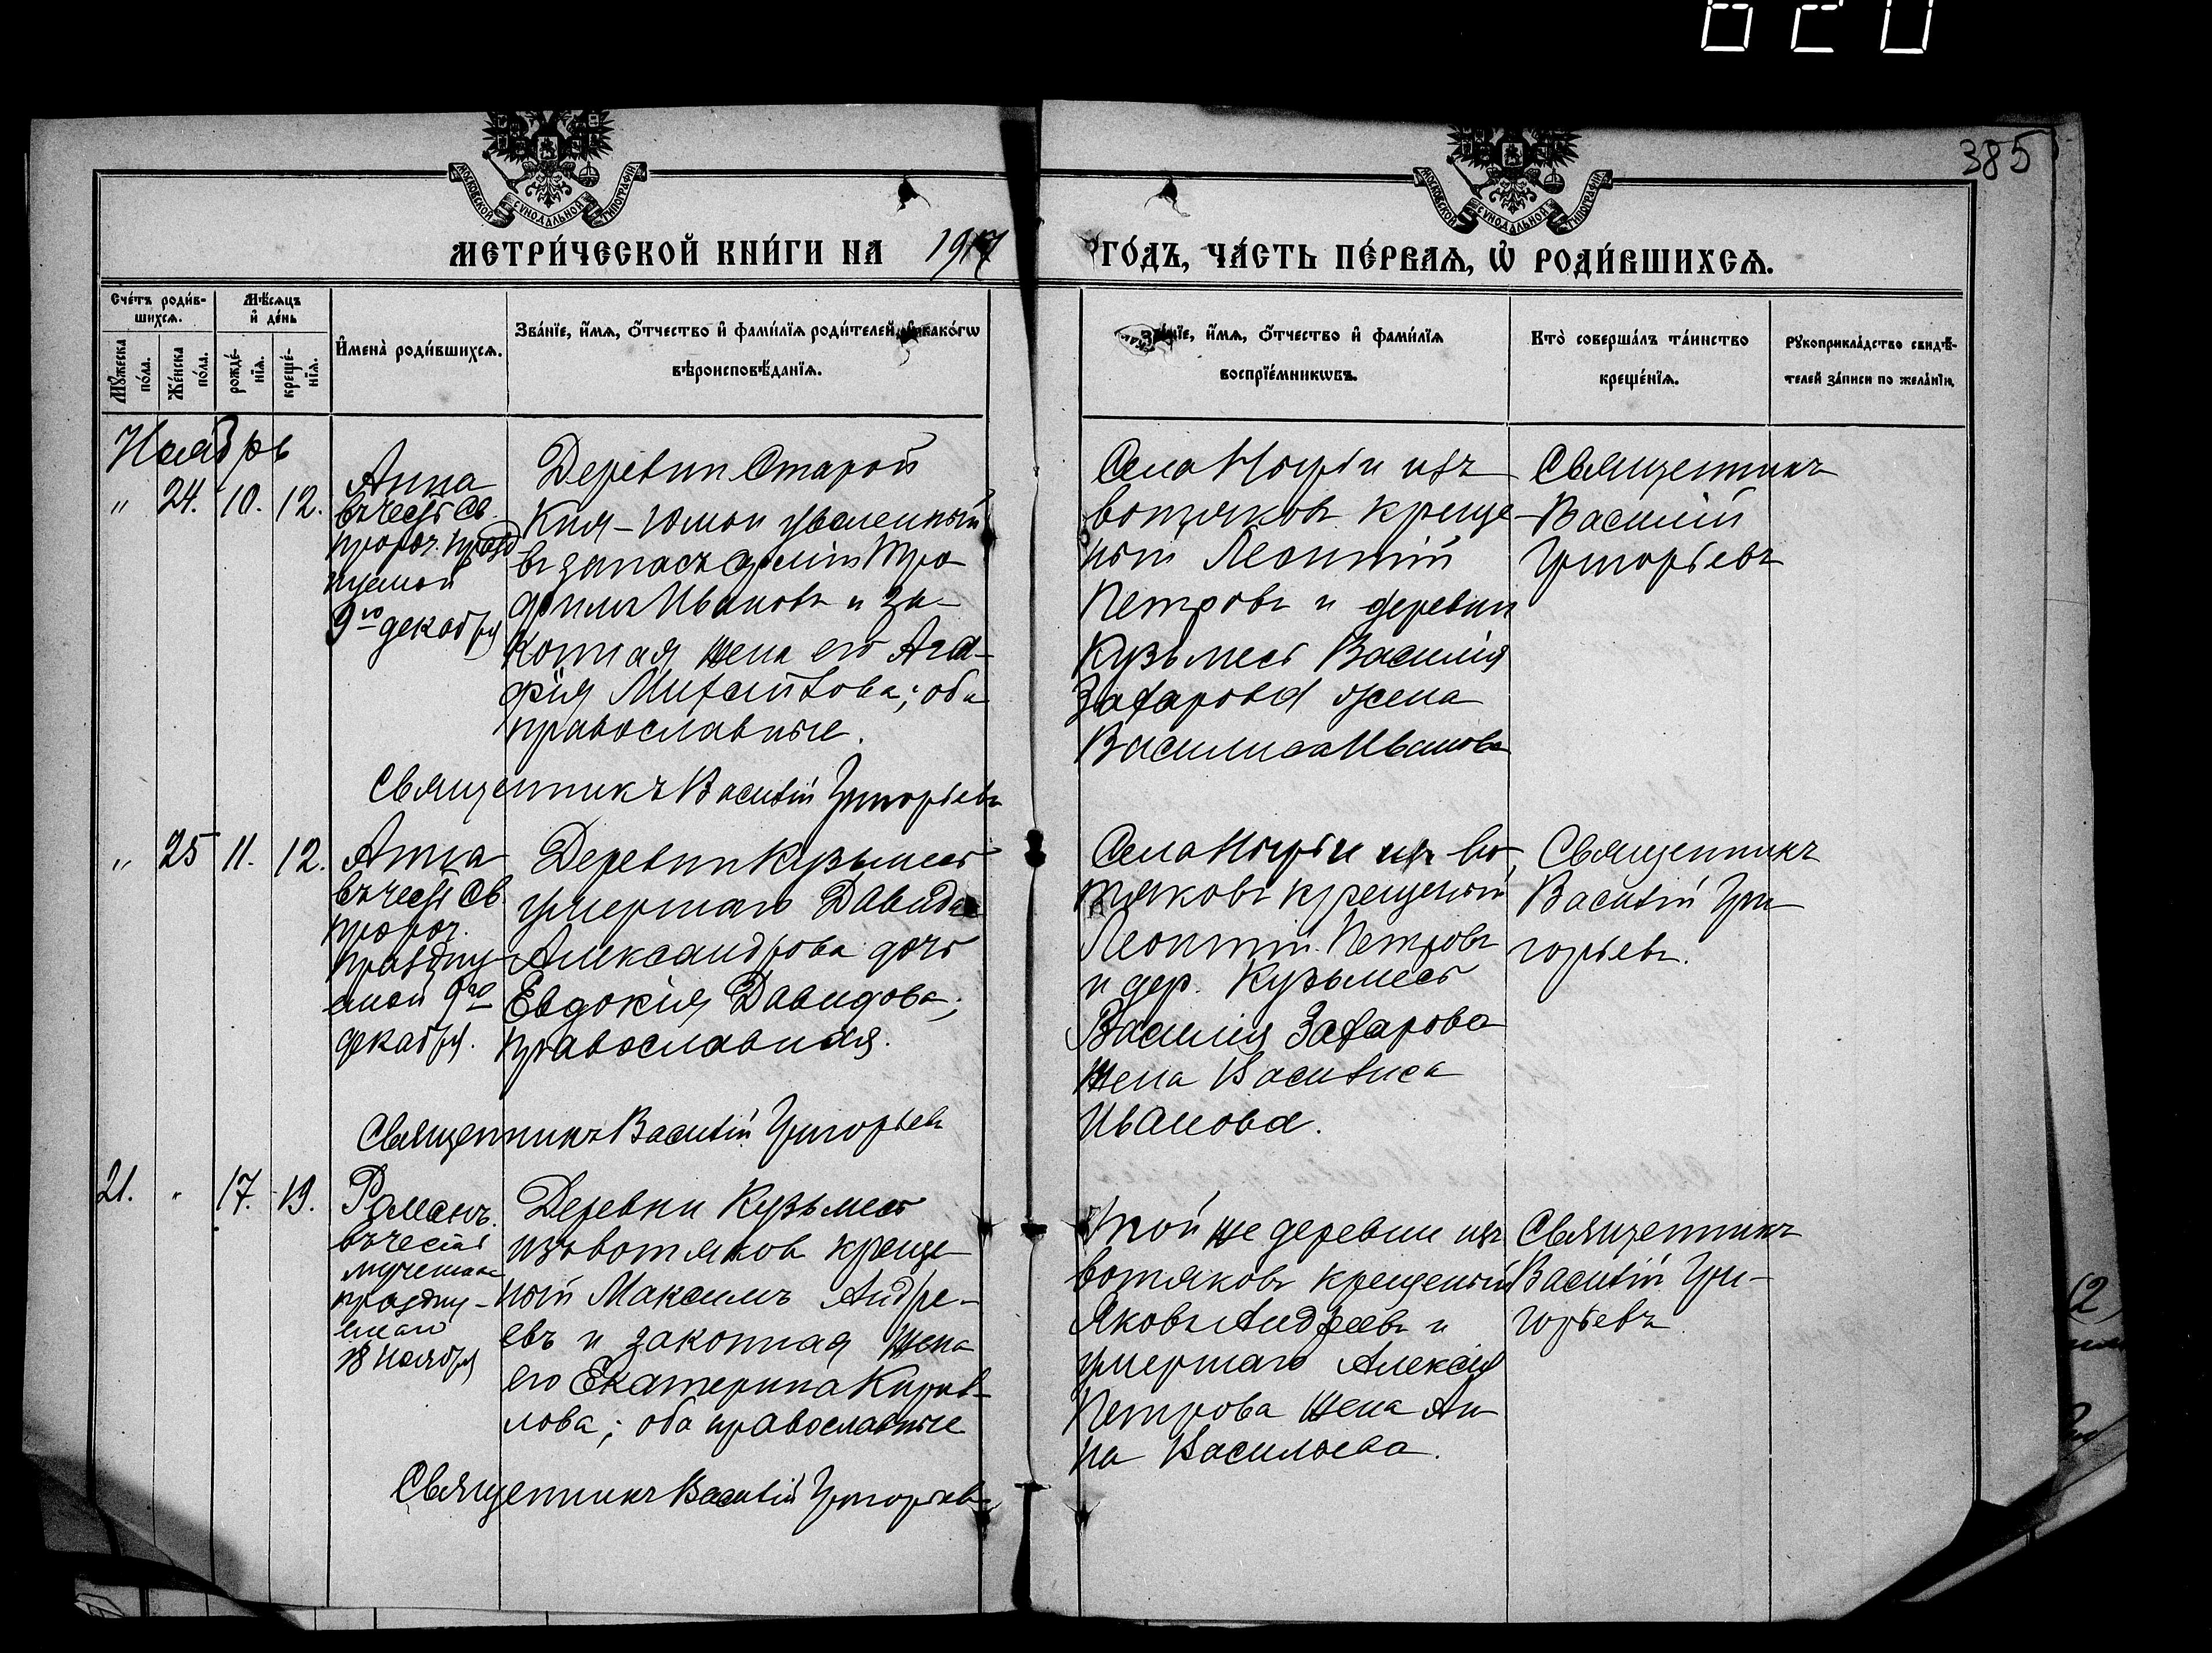 620
385
МОСКОВСКОЙ СѴНОДАЛЬНОЙ ТИПОГРАФІИ
МОСКОВСКОЙ СѴНОДАЛЬНОЙ ТИПОГРАФІИ
МЕТРИ́ЧЕСКОЙ КНИ́ГИ НА 1917 ГО́ДЪ, ЧА́СТЬ ПЕ́РВАѦ, Ѡ҆ РОДИ́ВШИХСѦ.
Сче́тъ роди́в-
шихсѧ.
Мꙋ́жеска по́ла.
Же́нска по́ла.
Мѣ́сѧцъ и҆ де́нь
рожде́-
нїѧ.
креще́-
нїѧ.
И҆мена̀ роди́вшихсѧ.
Зва́нїе, и҆́мѧ, ѻ҆́тчество и҆ фами́лїѧ роди́телей, и҆ како́гѡ
вѣроисповѣ́данїѧ.
Зва́нїе, и҆́мѧ, ѻ҆́тчество и҆ фами́лїѧ
воспрїе́мникѡвъ.
Кто̀ соверша́лъ та́инство
креще́нїѧ.
Рꙋкоприкла́дство свидѣ́-
телей за́писи по жела́нїю.
Ноябрь
" 24. 10. 12.
Анна
въ честь Св.
пророч. празд-
нуемой
9го декабря
Деревни Старой
Кня-Юмои уволенный
въ запасъ арміи Тро-
фимъ Ивановъ и за-
конная жена его Ага-
фія Михайлова; оба
православные.
Села Нырьи изъ
вотяковъ креще-
ный Леонтій
Петровъ и деревни
Кузьмесь Василія
Захарова жена
Василиса Иванова
Священникъ
Василій
Григорьевъ
Священникъ Василій Григорьевъ
" 25 11. 12.
Анна
въ честь Св.
пророч.
праздну-
емой 9го
декабря.
Деревни Кузьмесь
умершаго Давида
Александрова дочь
Евдокія Давидова;
православная.
Села Нырьи изъ во-
тяковъ крещеный
Леонтій Петровъ
и дер. Кузьмесь
Василія Захарова
жена Василиса
Иванова.
Священникъ
Василій Гри-
горьевъ.
Священникъ Василій Григорьевъ
21. " 17. 19.
Романъ.
въ честь
мученика
праздну-
емаго
18 ноября
Деревни Кузьмесь
изъ вотяковъ креще-
ный Максимъ Андре-
евъ и законная жена
его Екатерина Кирил-
лова; оба православные
Той же деревни изъ
вотяковъ крещеный
Яковъ Андреевъ и
умершаго Алексія
Петрова жена Ан-
на Васильева.
Священникъ
Василій Гри-
горьевъ
Священникъ Василій Григорьевъ